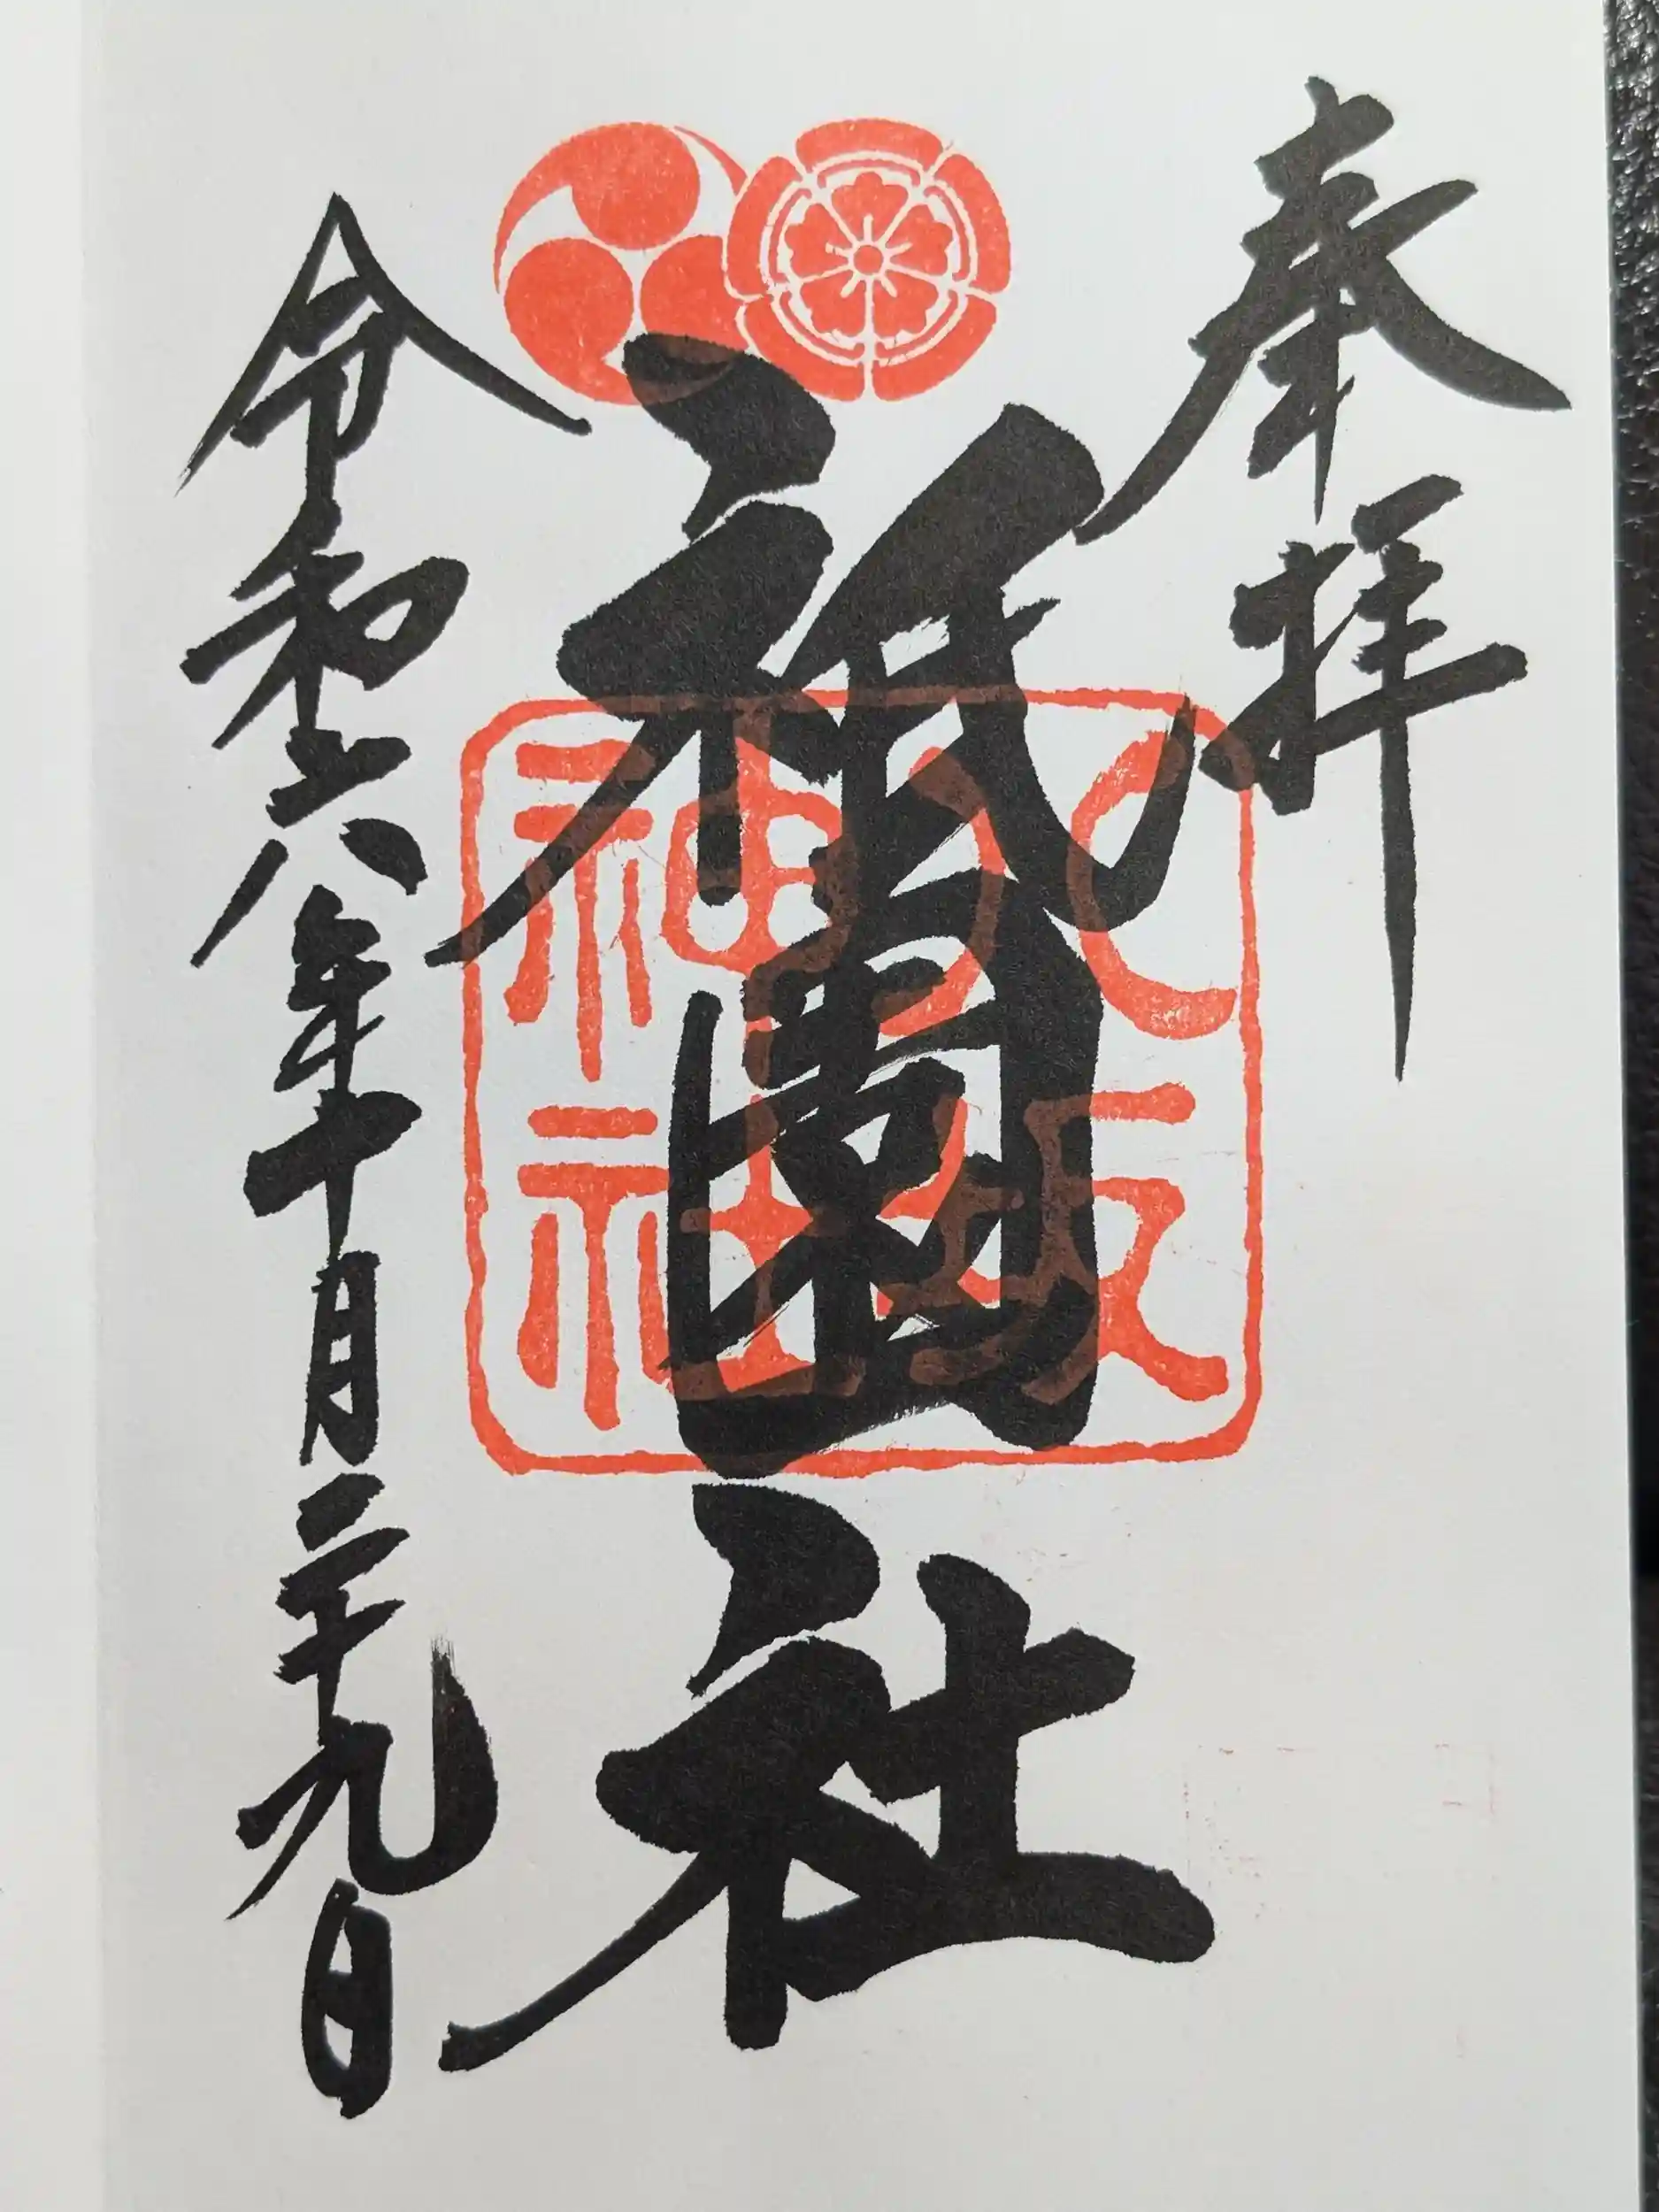 奉拝
祇園社
八坂神社
令和六年十月二十九日